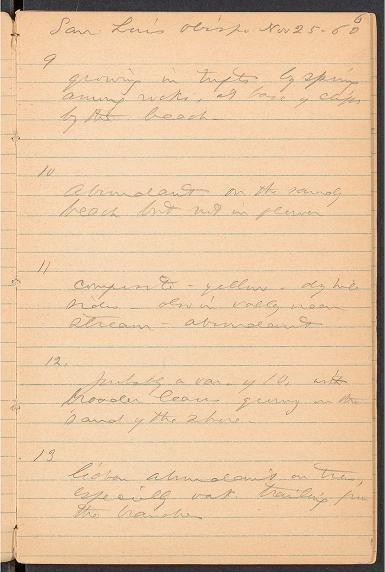 6
San Luis Obispo Nov 25 - 60
9
growing in tufts by spring
among rocks, at base of cliffs
by the beach -
10
abundant on the sandy
beach but not in flower
11
composite - yellow - dry hill
sides - also in valley near
stream - abundant
12.
probably a var. of 10, with
broader leaves growing on the
sand of the shore.
13
lichen abundant on trees,
especially oak trailing from
the branches